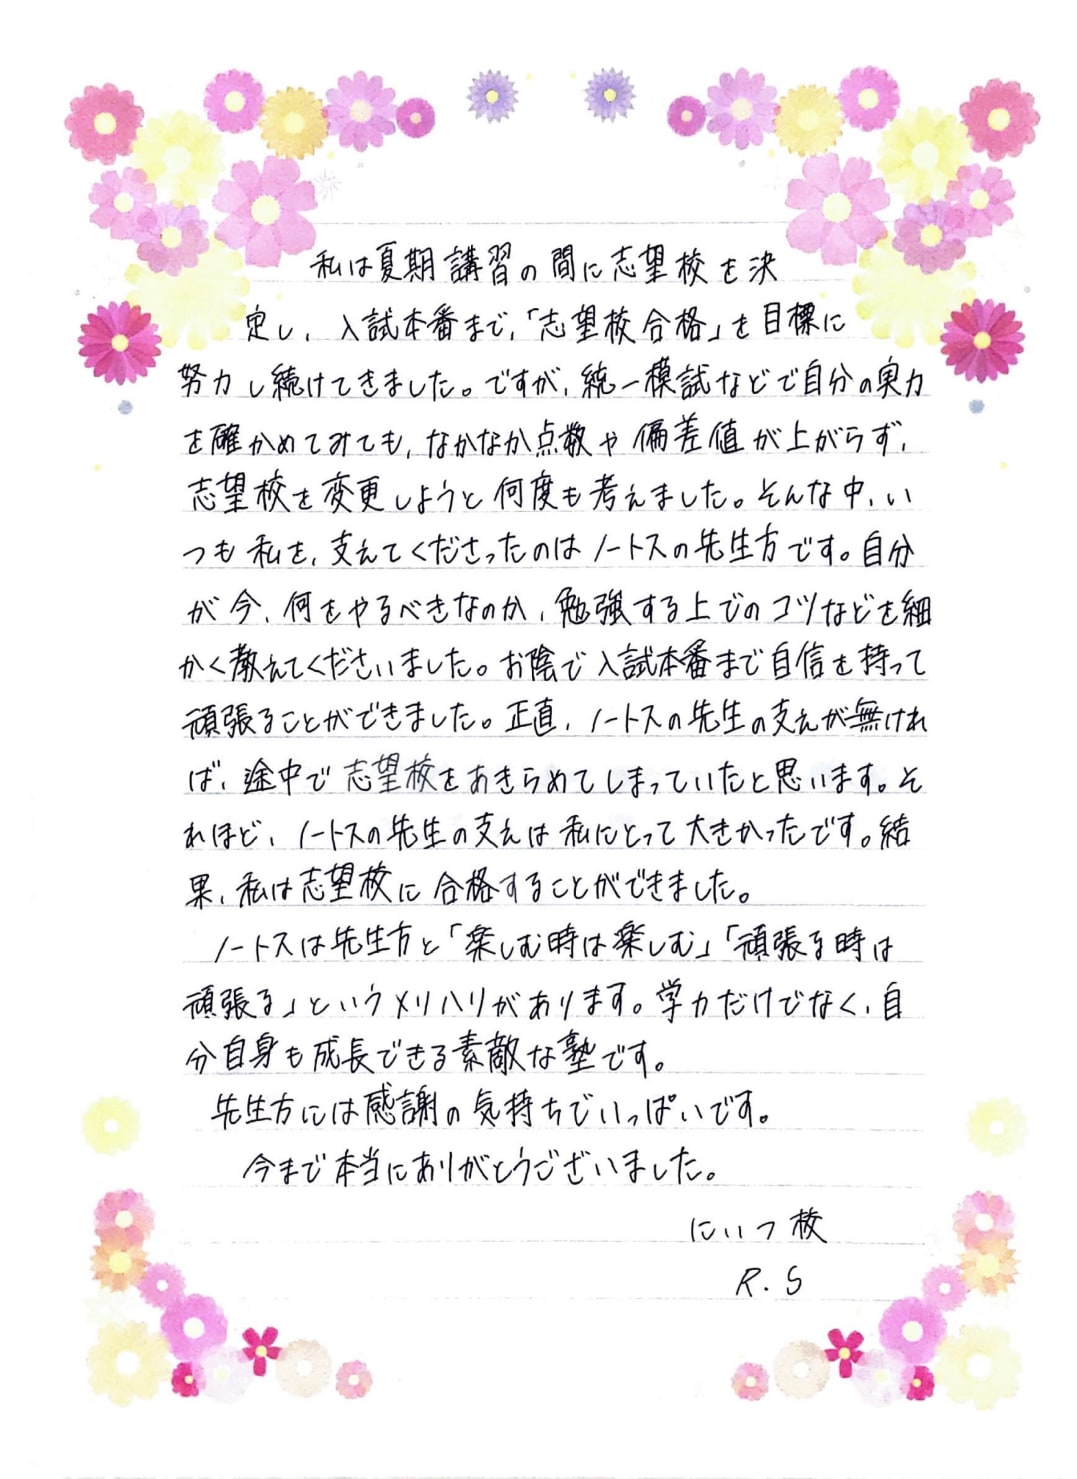 私は夏期講習の間に志望校を決
定し、入試本番まで、「志望校合格」を目標に
努力し続けてきました。ですが、統一模試などで自分の実力
を確かめてみても、なかなか点数や偏差値が上がらず、
志望校を変更しようと何度も考えました。そんな中、い
つも私を、支えてくださったのはノートスの先生方です。自分
が今、何をやるべきなのか、勉強する上でのコツなどを細
かく教えてくださいました。お陰で入試本番まで自信を持って
頑張ることができました。正直、ノートスの先生の支えが無けれ
ば、途中で志望校をあきらめてしまっていたと思います。そ
れほど、ノートスの先生の支えは私にとって大きかったです。結
果、私は志望校に合格することができました。
ノートスは先生方と「楽しむ時は楽しむ」「頑張る時は
頑張る」というメリハリがあります。学力だけでなく、自
分自身も成長できる素敵な塾です。
先生方には感謝の気持ちでいっぱいです。
今まで本当にありがとうございました。
にいつ校
R.S